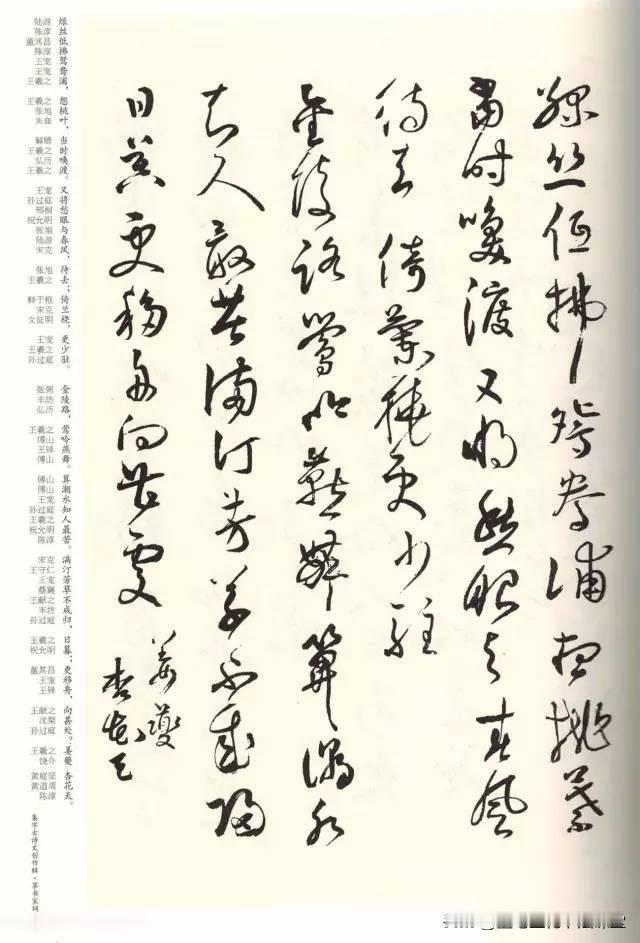 綠絲低拂鴛鴦浦想桃葉
當時喚渡又將愁眼與春風
待去倚蘭橈更少駐
金陵路鶯吟燕舞算潮水
知人最苦滿汀芳草不成歸
日暮更移舟向甚處
姜夔
杏花天
绿丝低拂鸳鸯浦,想桃叶,当时唤渡。又将愁眼与春风,待去;倚兰桡,更少驻。金陵路,莺吟燕舞。算潮水知人最苦。满汀芳草不成归,日暮;更移舟,向甚处?姜夔,杏花天。
陆游 陈淳 董其昌 陈淳 王宠 王宠 王羲之
王羲之 张旭 朱耷
解缙 王羲之 弘历 王羲之
王宠 孙过庭 邢侗 祝允明 张旭 陆游 宋克
张旭 王羲之
鲜于枢 宋克 文征明
王宠 王羲之 孙过庭
张弼 丰坊 弘历
王羲之 傅山 王铎 傅山
傅山 傅山 王宠 孙过庭 王羲之 祝允明 陈淳
宋克 王守仁 王宠 蔡襄 王献之 丰坊 孙过庭
王羲之 祝允明
董其昌 王宠 王铎
王献之 沈粲 孙过庭
王羲之 饶介
黄庭坚 黄道周 陈淳
集字古诗文创作辑·草书宋词